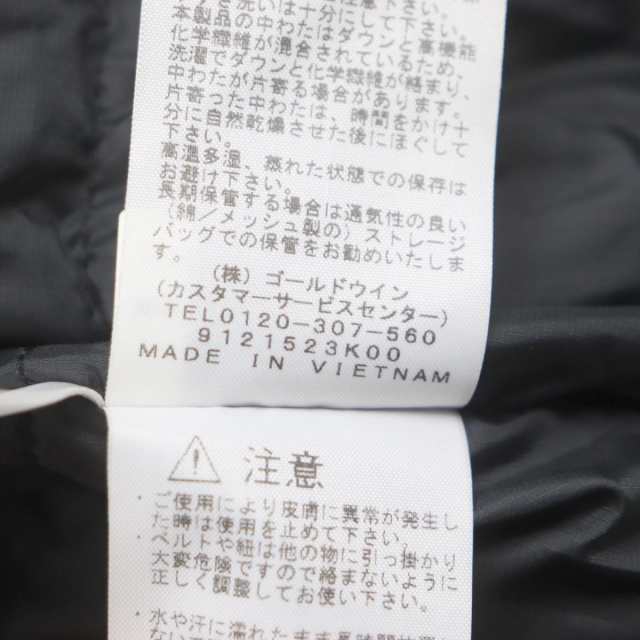 洗いは十分にして下さい。
本製品の中わたはダウンと高機能
化学繊維が混合されているため、
洗濯でダウンと化学繊維が絡まり、
中わたが片寄る場合があります。
片寄った中わたは、時間をかけ十
分に自然乾燥させた後にほぐして
下さい。
高温多湿、蒸れた状態での保存は
お避け下さい。
長期保管する場合は通気性の良い
(綿／メッシュ製の) ストレージ
バッグでの保管をお勧めいたしま
す。
(株) ゴールドウイン
(カスタマーサービスセンター)
TEL0120-307-560
9121523K00
MADE IN VIETNAM
注意
・ご使用により皮膚に異常が発生し
た時は使用を止めて下さい。
・ベルトや紐は他の物に引っ掛かり
大変危険ですので絡まないように
正しく調整してお使い下さい。
・水や汗に濡れたまま長時間